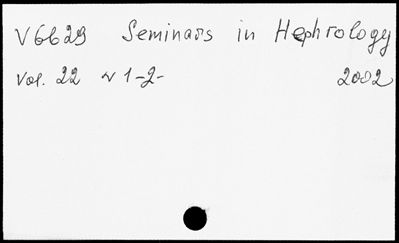 V6629 Seminars in Hephrology
Vol. 22 N 1-2- 2002